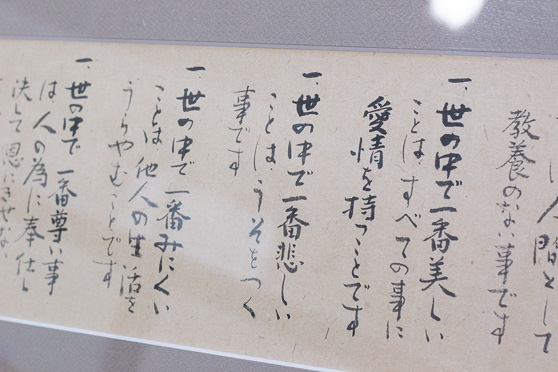 は人間として
教養のない事です
一、世の中で一番美しい
ことは、すべての事に
愛情を持つことです
一、世の中で一番悲しい
ことは、うそをつく
事です
一、世の中で一番みにくい
ことは他人の生活を
うらやむことです
一、世の中で一番尊い事
は人の為に奉仕し
決して恩にきせない